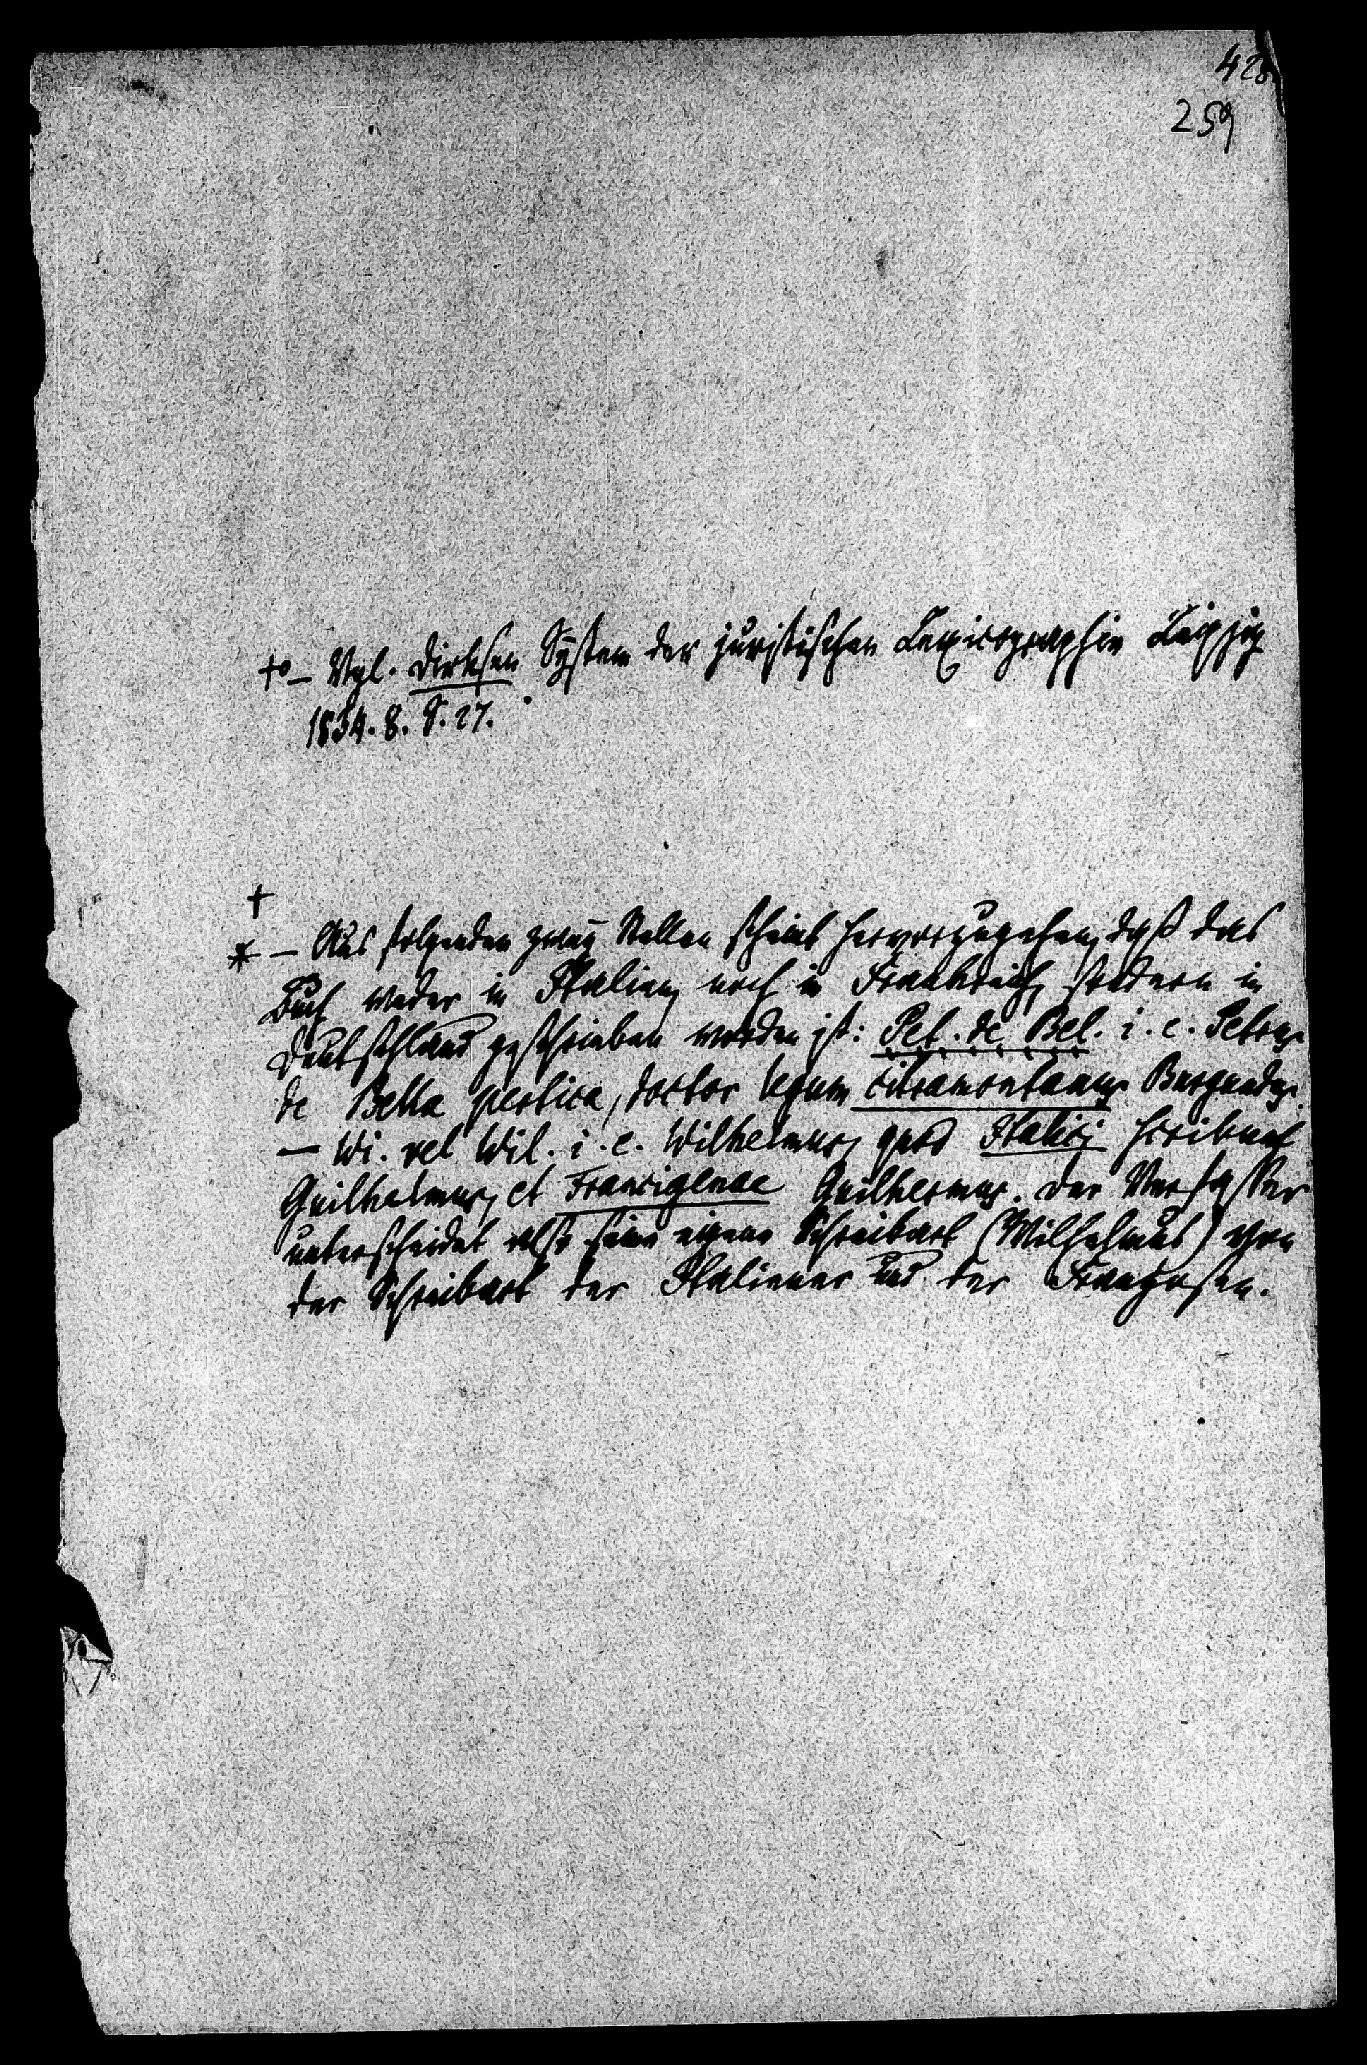 428
259
+o – Vgl. Dirksen System der juristischen Lexicographie Leipzig
1834. 8. S. 27.
+
* – Aus folgenden zwey Stellen scheint hervorzugehen, daß das
Buch weder in Italien, noch in Frankreich, sondern in
Deutschland geschrieben worden ist: Pet. de Bel. i. e. Petrus
de Bella pertica, doctor legum citramontanus Burgundus.
– Wi. vel Wil. i. e. Wilhelmus, quod Italici scribunt
Guilhelmus, et Francigenae Guilhermus. Der Verfasser
unterscheidet also seine eigene Schreibart (Wilhelmus) von
der Schreibart der Italiener und der Franzosen.